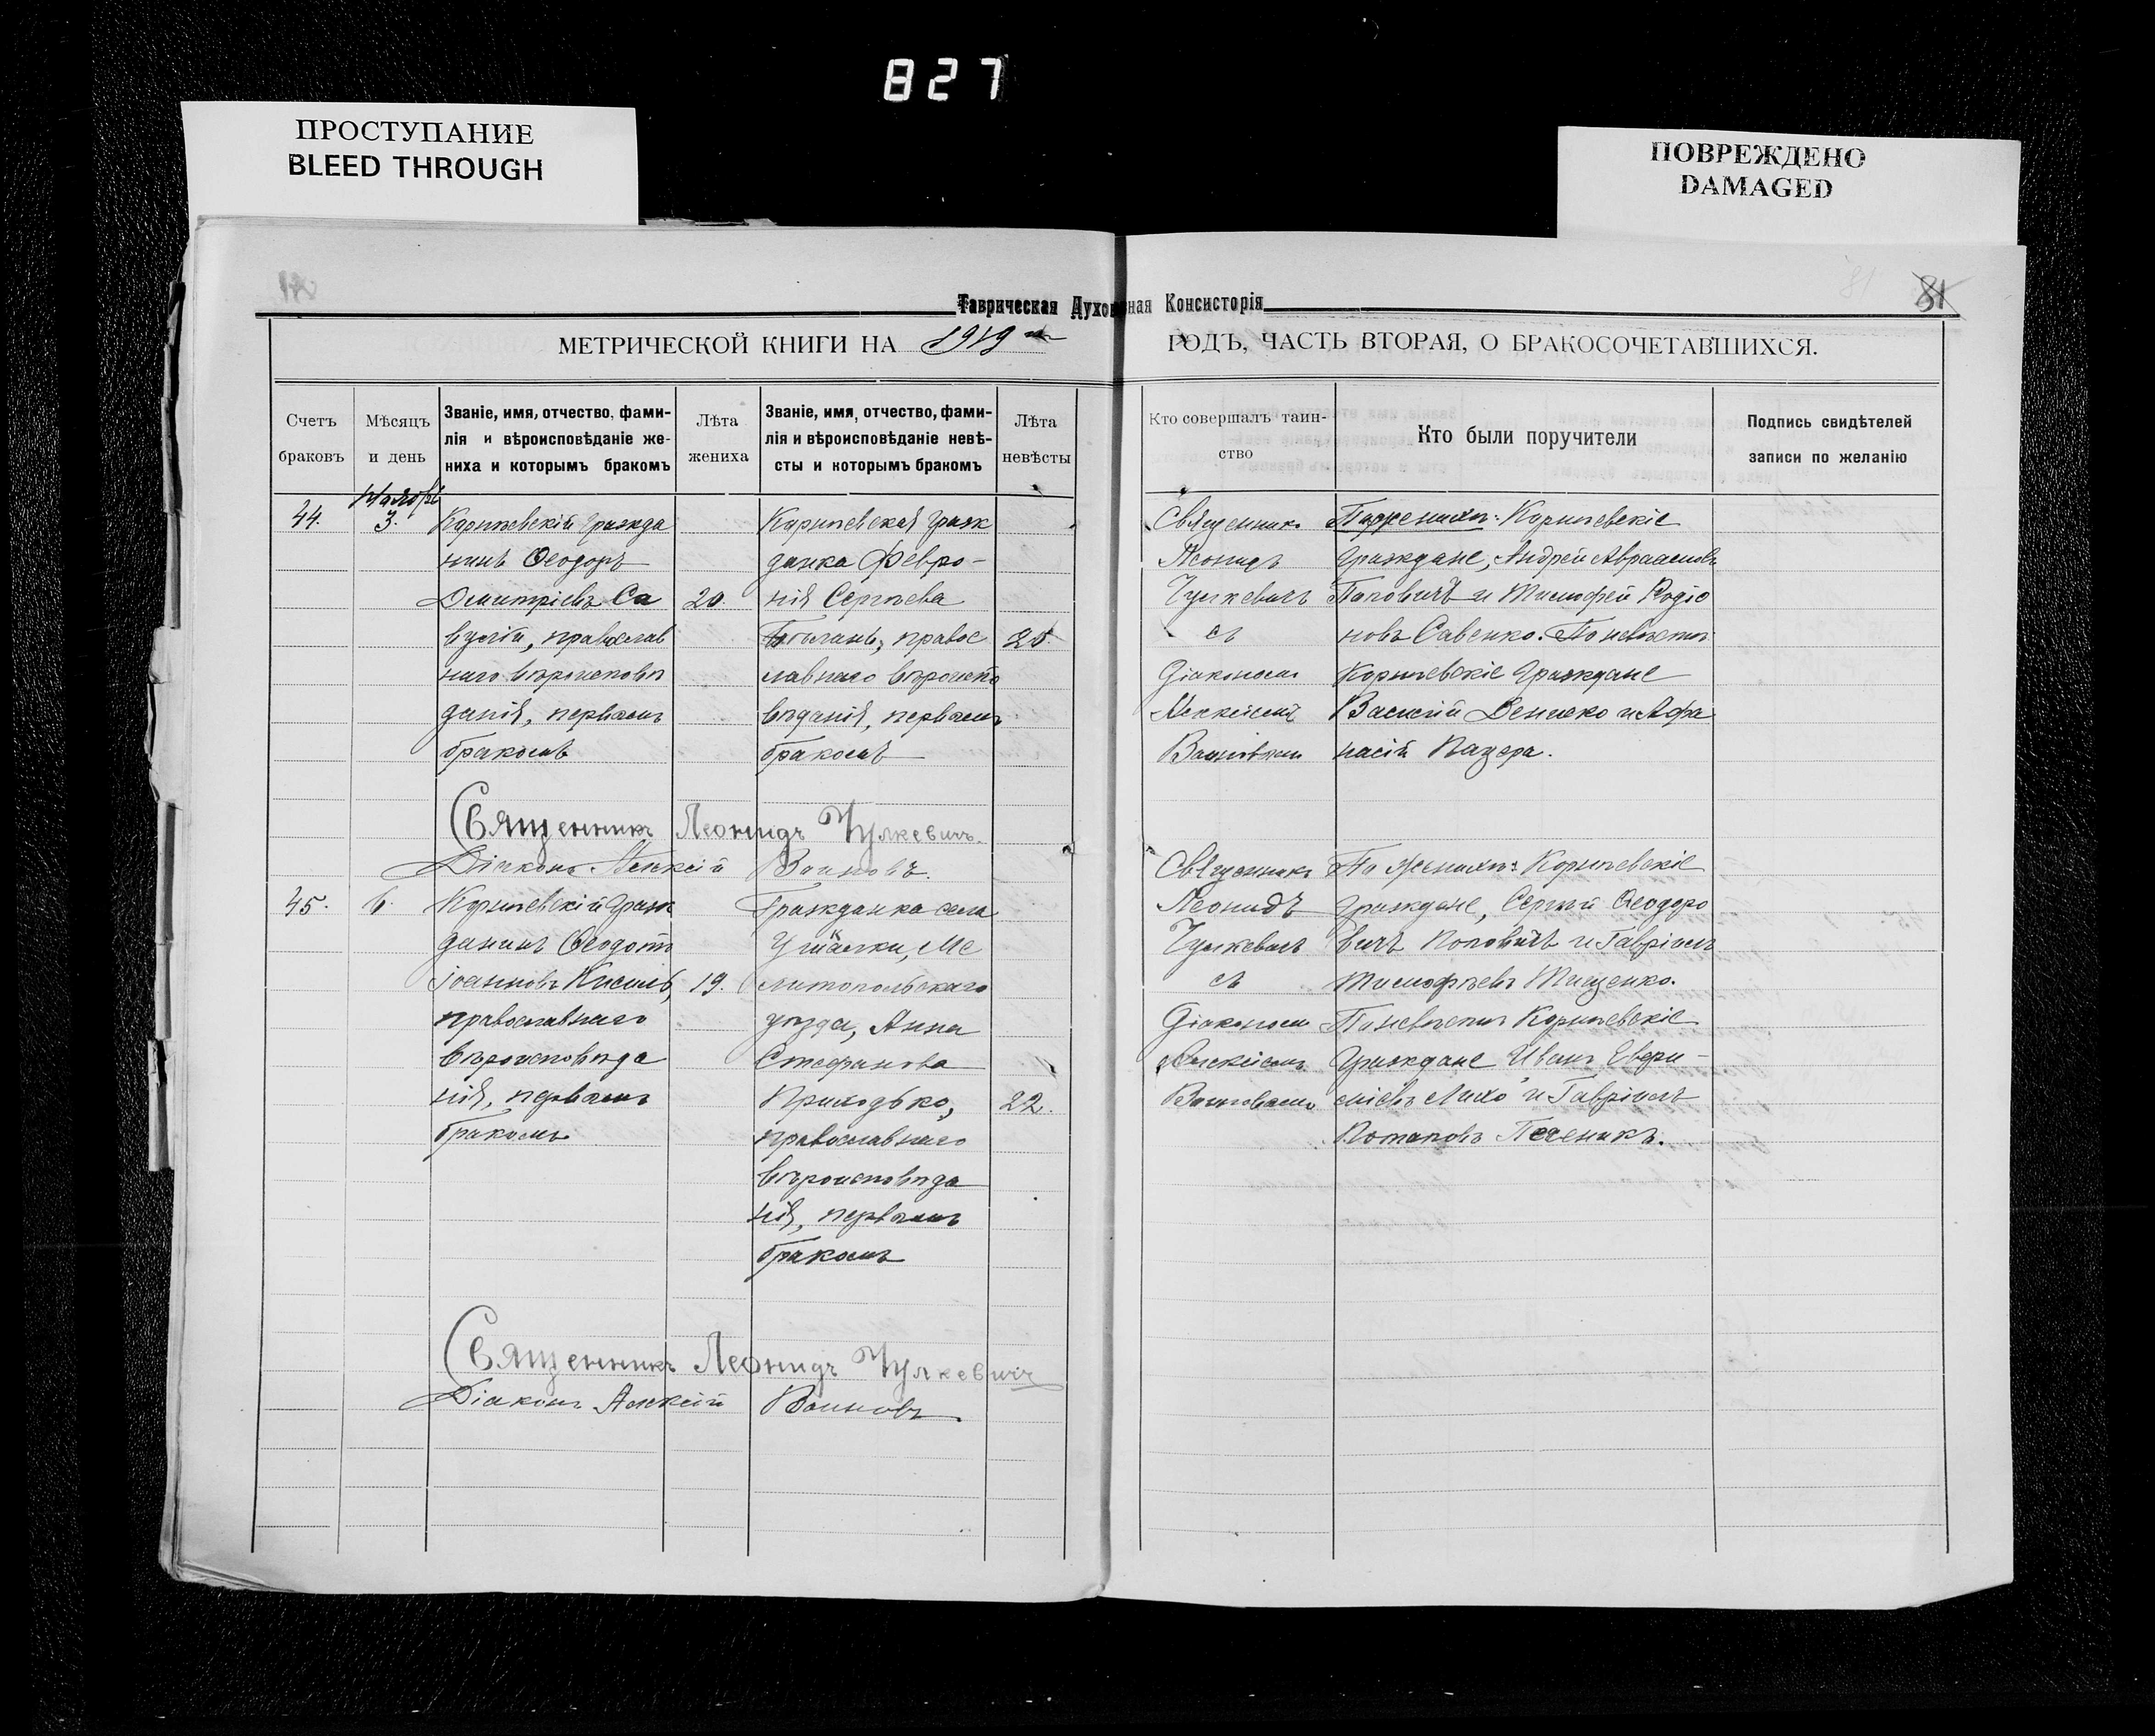 827
ПРОСТУПАНИЕ
BLEED THROUGH
ПОВРЕЖДЕНО
DAMAGED
81
Таврическая Духовная Консисторія
МЕТРИЧЕСКОЙ КНИГИ НА 1919 ГОДЪ, ЧАСТЬ ВТОРАЯ, О БРАКОСОЧЕТАВШИХСЯ.
Счетъ браковъ
Мѣсяцъ и день
Званіе, имя, отчество, фами-
лія и вѣроисповѣданіе же-
ниха и которымъ бракомъ
Лѣта жениха
Званіе, имя, отчество, фами-
лія и вѣроисповѣданіе невѣ-
сты и которымъ бракомъ
Лѣта невѣсты
Кто совершалъ таин-
ство
Кто были поручители
Подпись свидѣтелей
записи по желанію
44.
Ноября
3.
Корнѣевскій гражда
нинъ Ѳеодоръ
Димитріевъ Са
вуляй, православ
наго вѣроисповѣ
данія, первымъ
бракомъ
20.
Корнѣевская граж
данка Февро-
нія Сергѣева
правос
лавнаго вѣроиспо
вѣданія, первымъ
бракомъ
20
Священник
Леонидъ
Чулкевичъ
съ
Діакономъ
Алексіемъ
Воиновым
По женихѣ: Корнѣевскіе
граждане, Андрей Авраамовъ
Поповичъ и Тимофей Родіо
новъ Савенко. По невѣстѣ:
Корнѣевскіе граждане
Василій Денеко и Афа
насій Пазера.
Священникъ Леонидъ Чулкевичъ.
Діаконъ Алексій Воиновъ.
45.
6.
Корнѣевскій граж
данинъ Ѳеодотъ
Іоанновъ Кисиль,
православнаго
вѣроисповѣда
нія, первымъ
бракомъ
19.
Гражданка села
Ушкалки, Ме
литопольскаго
уѣзда, Анна
Стефанова
Приходько,
православнаго
вѣроисповѣда
нія, первымъ
бракомъ
22.
Священникъ
Леонидъ
Чулкевичъ
съ
Діакономъ
Алексіемъ
Воиновымъ
По женихѣ: Корнѣевскіе
граждане, Сергѣй Ѳеодоро
вичъ Поповичъ и Гавріилъ
Тимофѣевъ Тищенко.
По невѣстѣ Корнѣевскіе
граждане Иванъ Евфи-
міевъ Лихо и Гавріилъ
Потаповъ Песеникъ.
Священникъ Леонидъ Чулкевичъ
Діаконъ Алексій Воиновъ